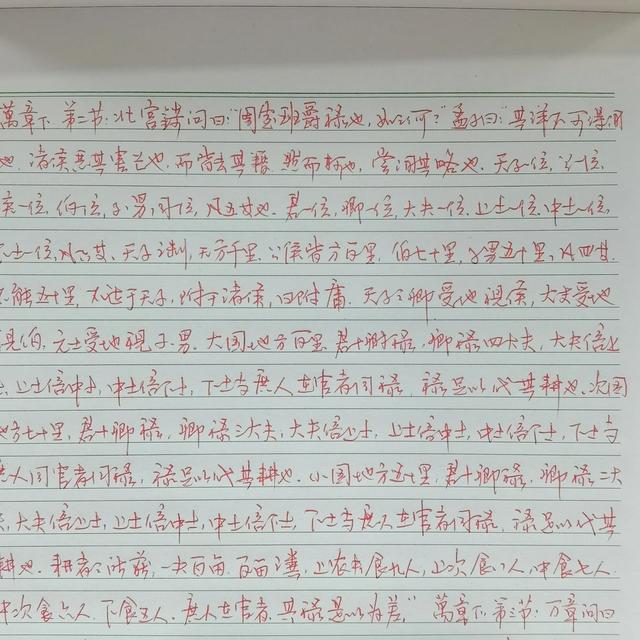 萬章下 第二节：北宫錡问曰："周室班爵禄也，如之何？"孟子曰："其详不可得闻
也，诸侯恶其害己也，而皆去其籍，然而轲也，尝闻其略也。天子一位，公一位，
侯一位，伯一位，子男同一位，凡五等也。君一位，卿一位，大夫一位，上士一位，中士一位，
下士一位，凡六等。天子之制，地方千里，公侯皆方百里，伯七十里，子男五十里，凡四等。
不能五十里，不达于天子，附于诸侯，曰附庸。天子之卿受地视侯，大夫受地
视伯，元士受地视子男。大国地方百里，君十卿禄，卿禄四大夫，大夫倍上
士，上士倍中士，中士倍下士，下士与庶人在官者同禄，禄足以代其耕也。次国
地方七十里，君十卿禄，卿禄三大夫，大夫倍上士，上士倍中士，中士倍下士，下士与
庶人同官者同禄，禄足以代其耕也。小国地方五十里，君十卿禄，卿禄二大
夫，大夫倍上士，上士倍中士，中士倍下士，下士与庶人在官者同禄，禄足以代其
耕也。耕者之所获，一夫百亩，百亩之粪，上农夫食九人，上次食八人，中食七人，
中次食六人，下食五人。庶人在官者，其禄是以为差。" 萬章下 第三节：万章问曰